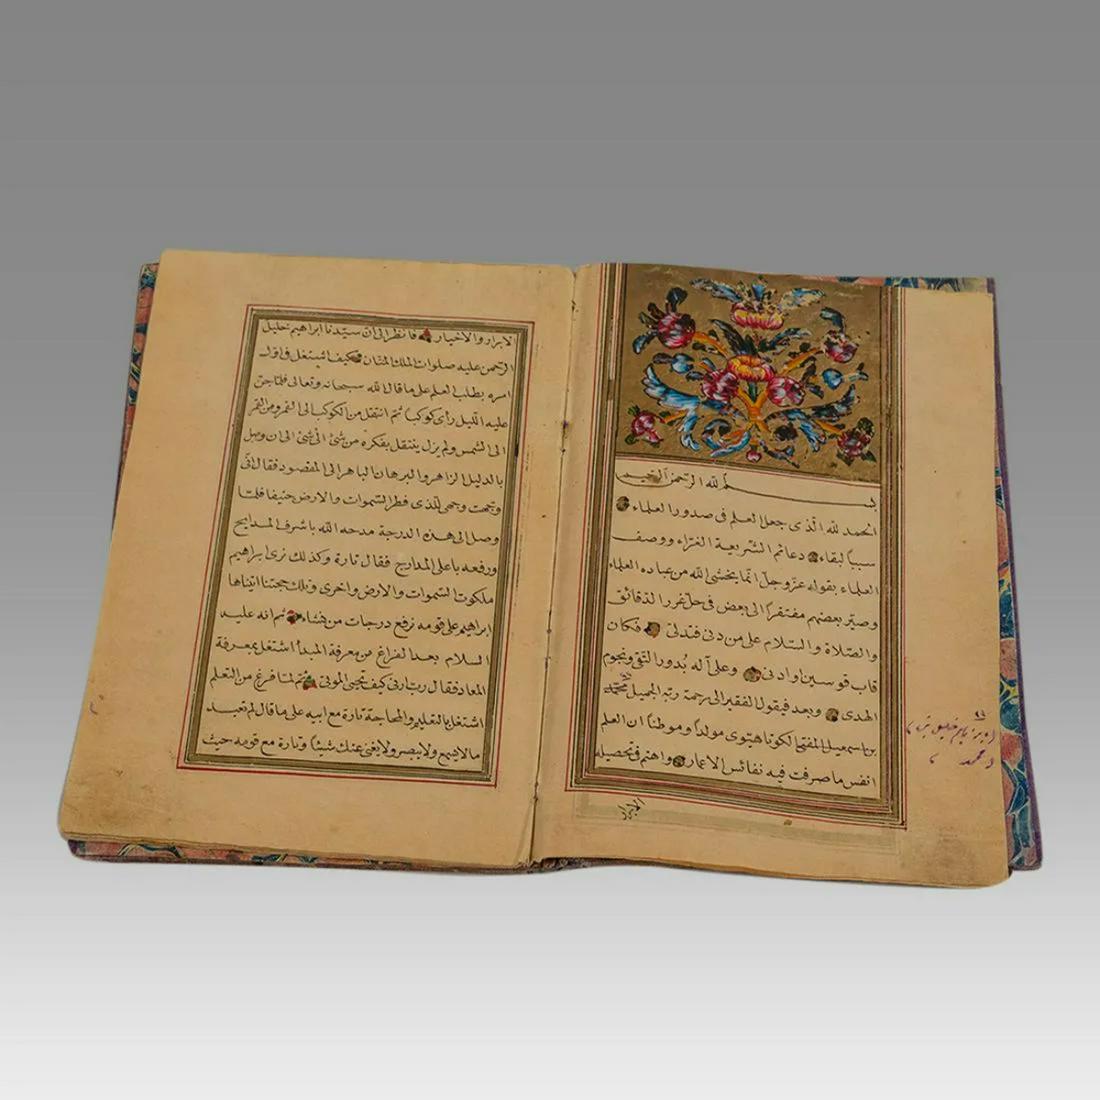 بسم الله الرحمن الرحيم
الحمد لله الذى جعل العلم فى صدور العلماء
سببا لبقاء دعائم الشريعة الغراء ووصف
العلماء بقوله عز وجل انما يخشى الله من عباده العلماء
وصير بعضهم مفتقرا الى بعض فى حل غرر الدقائق
والصلاة والسلام على من دنى فتدلى فكان
قاب قوسين او ادنى وعلى آله بدور التقى ونجوم
الهدى وبعد فيقول الفقير الى رحمة ربه الجميل محمد
بن اسمعيل المفتى الكوتاهيتوى مولدا وموطنا ان العلم
انفس ما صرفت فيه نفائس الاعمار واهتم فى تحصيله
الابرار
الابرار والاخيار فانظر الى ان سيدنا ابراهيم خليل
الرحمن عليه صلوات الملك المنان كيف اشتغل فى اول
امره بطلب العلم على ما قال لله سبحانه وتعالى فلما جن
عليه الليل رأى كوكبا ثم انتقل من الكوكب الى القمر ومن القمر
الى الشمس ولم يزل ينتقل بفكره من شئ الى شئ الى ان وصل
بالدليل الزاهر والبرهان الباهر الى المقصود فقال انى
وجهت وجهى للذى فطر السموات والارض حنيفا فلما
وصل الى هذه الدرجة مدحه الله باشرف المدايح
ورفعه باعلى المدارج فقال تارة وكذلك نرى ابراهيم
ملكوت السموات والارض واخرى وتلك حجتنا اتيناها
ابراهيم على قومه نرفع درجات من نشاء ثم انه عليه
السلام بعد الفراغ من معرفة المبدأ اشتغل بمعرفة
المعاد فقال رب ارنى كيف تحيى الموتى ثم لما فرغ من التعلم
اشتغل بالتعليم والمحاجة تارة مع ابيه على ما قال لم تعبد
ما لا يسمع ولا يبصر ولا يغنى عنك شيئا وتارة مع قومه حيث